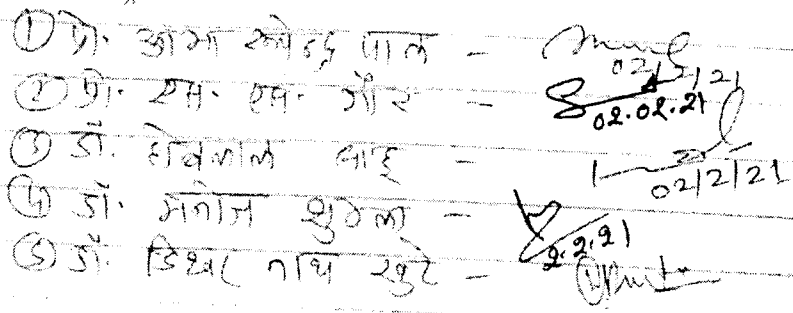 ① प्रो. आभा रूपेन्द्र पाल - 02/2/21
② प्रो. एस. एस. गौर - 02.02.21
③ डॉ. साहू - 02/2/21
④ डॉ. मनोज शुक्ला - 2.2.21
⑤ डॉ. डिश्वर नाथ खुटे -